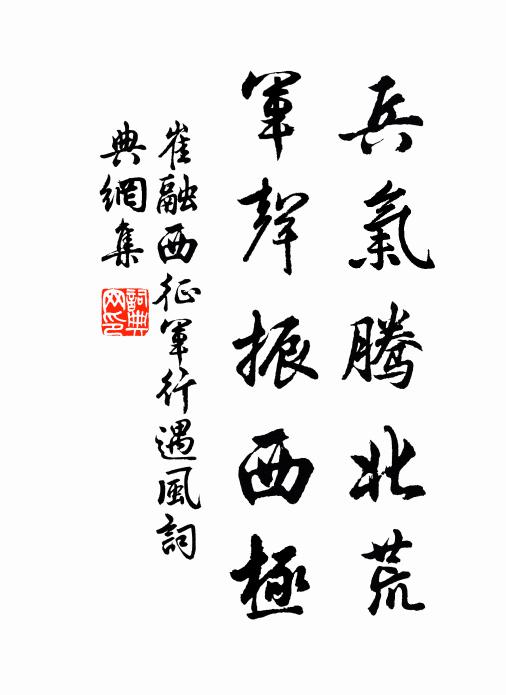 兵氣騰北荒
軍聲振西極
崔融西征軍行遇風詞
典網集
詞典
網印